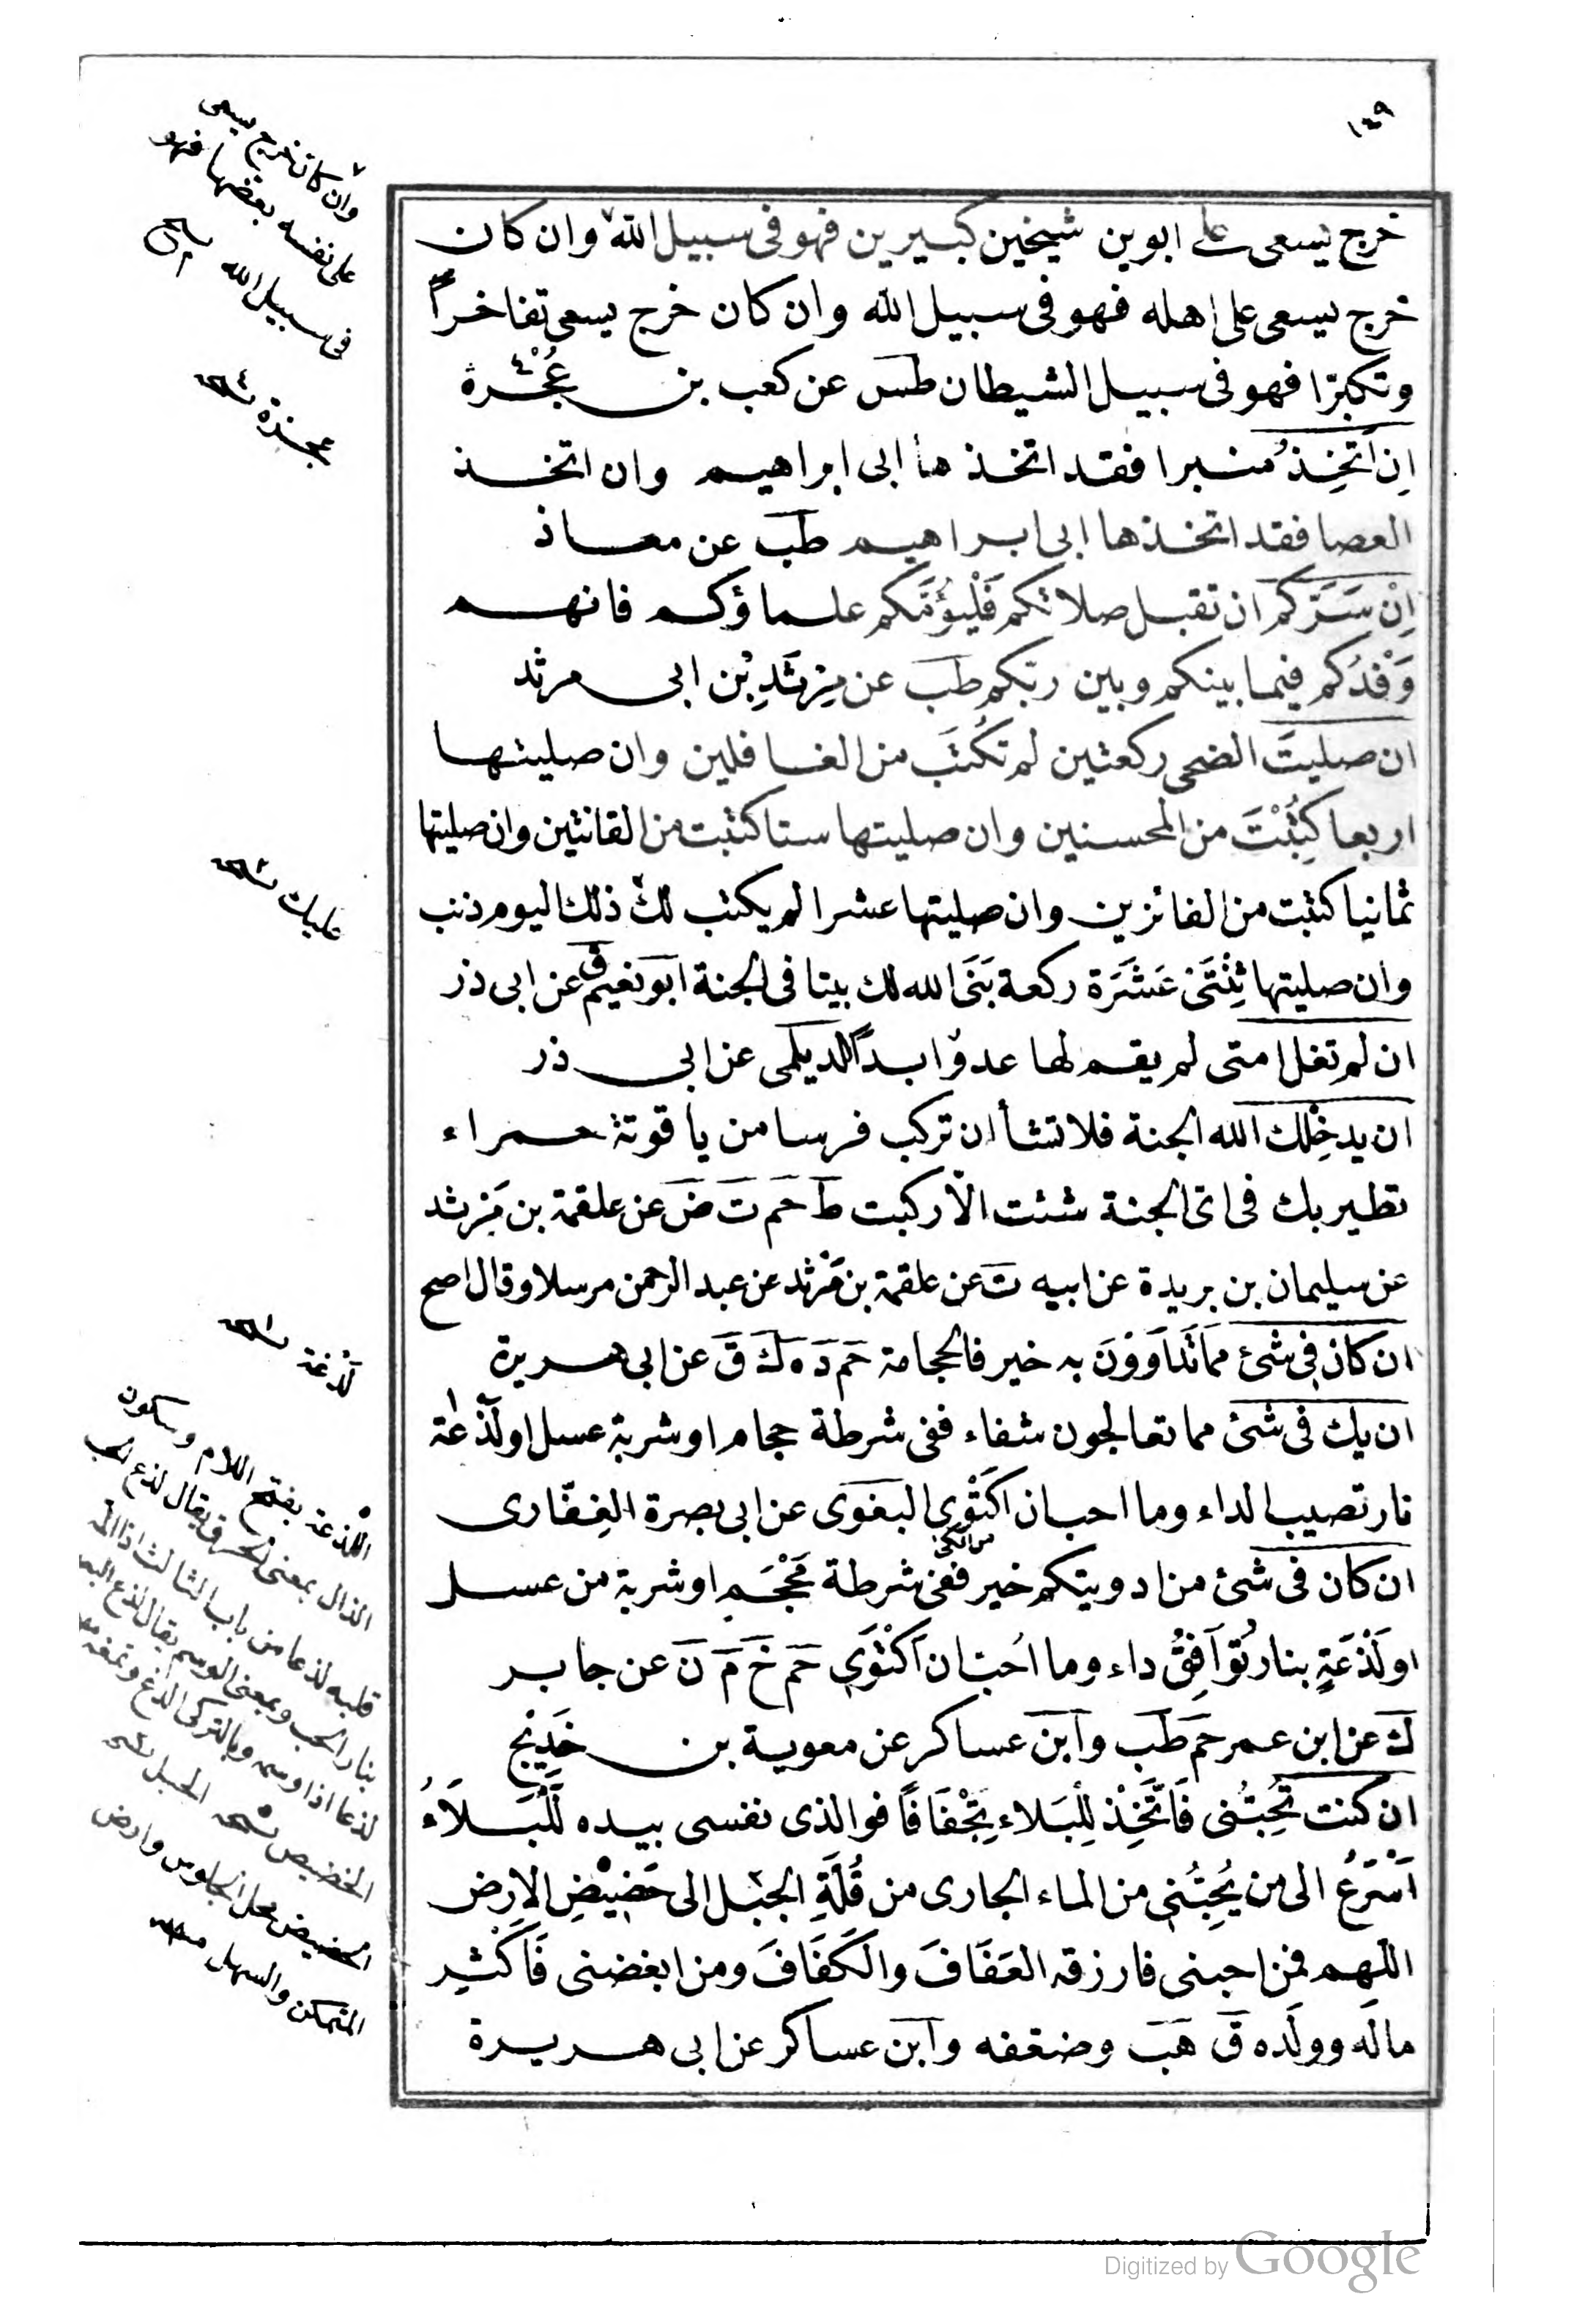 ١٤٩
خرج يسعى على ابوين شيخين كبيرين فهو فى سبيل الله وان كان
خرج يسعى على اهله فهو فى سبيل الله وان كان خرج يسعى تفاخراً
وتكبّرا فهو فى سبيل الشيطان طس عن كعب بن عُجْرة
اِن اَتَّخِذُ منبرا فقد اتخذ ها ابى ابراهيم وان اتخذ
العصا فقد اتخذها ابى ابراهيم طب عن معاذ
اِنْ سَرَّكم ان تقبل صلاتكم فَلْيَؤُمَّكم علماؤكم فانهم
وَفْدُكم فيما بينكم وبين ربّكم طب عن مَرْثَدِ بْن ابى مرثد
ان صليتَ الضحى ركعتين لم تكُتَب من الغافلين وان صليتها
اربعا كُتِبْتَ من المحسنين وان صليتها ستا كتبت من القانتين وان صليتها
ثمانيا كتبت من الفائزين وان صليتها عشرا لم يكتب لك ذلك اليوم ذنب
وان صليتها ثِنْتَىْ عَشَرَة ركعة بَنَى الله لك بيتا فى الجنة ابو نعيم ق عن ابى ذر
ان لم تغل امتى لم يقم لها عدوّ ابداً الديلمى عن ابى ذر
ان يدخِلك الله الجنة فلا تشأ ان تركب فرسا من ياقوتة حمراء
تطير بك فى اىّ الجنة شئت الّا ركبت ط حم ت ض عن علقمة بن مَرْثد
عن سليمان بن بريدة عن ابيه ت عن علقمة بن مَرْثد عن عبد الرحمن مرسلا وقال اصح
ان كان فى شئ مما تَدَاوَوْنَ به خير فالحجامة حم د ه ك ق عن ابى هريرة
ان يك فى شئ مما تعالجون شفاء ففى شرطة حجام او شربة عسل او لَذْعة
نار تصيب الداء وما احب ان اكْتَوِى البغوى عن ابى بصرة الغِفّارى
ان كان فى شئ من ادويتكم خير ففى شرطة مَحْجَمٍ او شربة من عسل
او لَذْعَةٍ بنار تُوَافِقُ داء وما اُحبّ ان اَكْتَوِى حم خ م ن عن جابر
ك عن ابن عمر حم طب وابن عساكر عن معوية بن خَدِيْج
ان كنت تُحِبُّنى فَاتَّخِذْ لِلْبَلاء تِجْفَافًا فوالذى نفسى بيده لَلْبَلَاءُ
اَسْرَعُ الى من يُحِبُّنى من الماء الجارى من قُلَّةِ الجبل الى حَضِيْضِ الارض
اللهم فمن احبنى فارزقه العَفَافَ والكَفَافَ ومن ابغضنى فَاَكْثِر
مالَه وولَده ق هب وضعّفه وابن عساكر عن ابى هريرة
وان كان خرج يسعى
على نفسه يعفّها فهو
فى سبيل الله
عجزة
عليك
لَدْغة
اللذعة بفتح اللام وسكون
الذال بمعنى الحرق يقال لذع الحب
قلبه لذعا من باب الثالث اذا المه
بنار الحب وبمعنى الوسم يقال لذع
لذعا اذا وسمه وبالتركى
الحضيض محل الجلوس وارض
المتمكن والسهل
Digitized by Google